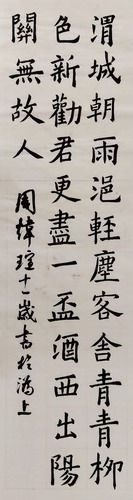 渭城朝雨浥輕塵客舍青青柳
色新勸君更盡一盃酒西出陽
關無故人
周煒瑄十一歲書於滬上